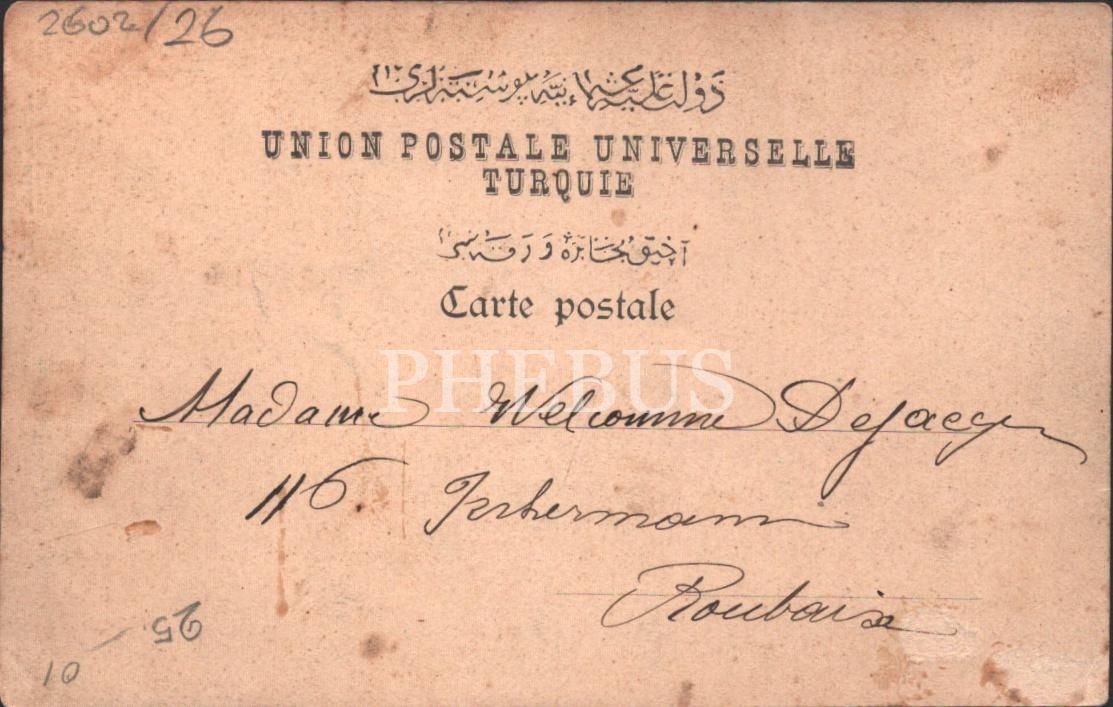 2602/26
دولت عليهٔ عثمانيه پوسته‌لرى
UNION POSTALE UNIVERSELLE
TURQUIE
آچيق مخابره ورقه سى
Carte postale
PHEBUS
Madame Welcomme Dejaegh
116 Inkermann
Roubaix
25
10